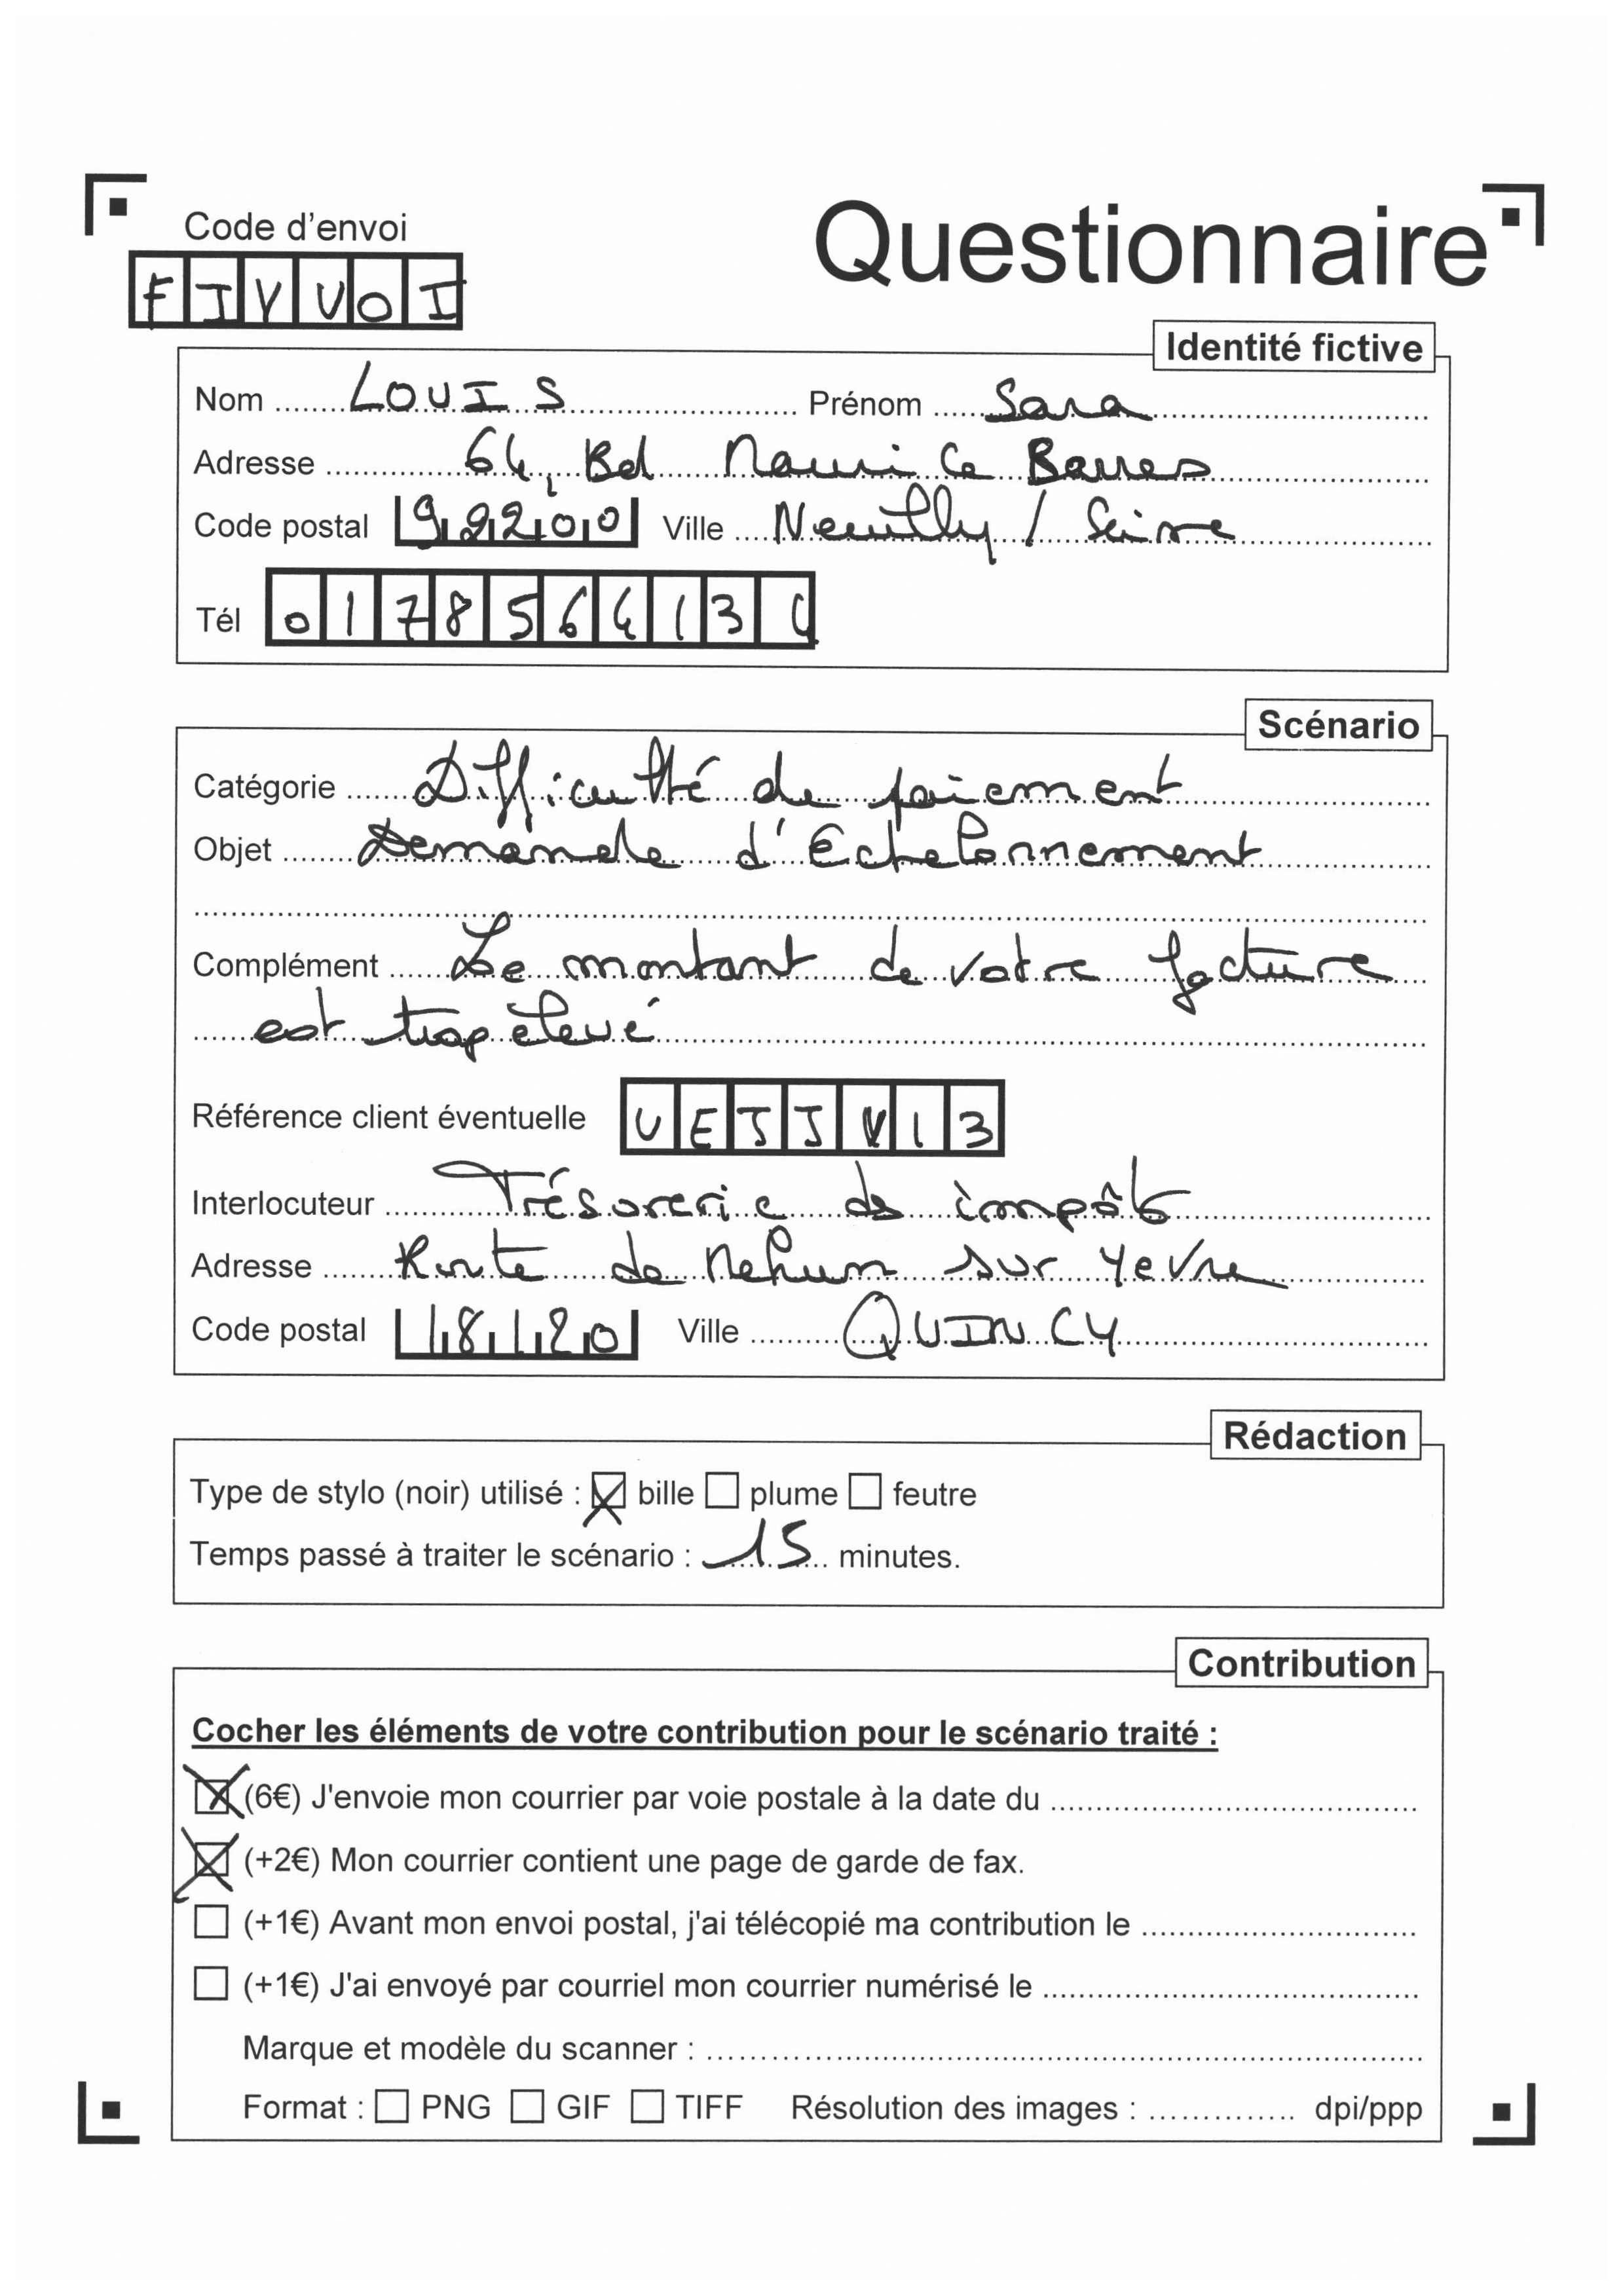 Code d'envoi
Questionnaire
FJYVOI
Identité fictive
Nom LOUIS Prénom Sara
Adresse 64, Bd Maurice Barres
Code postal 92200 Ville Neuilly / Seine
Tél 0178564134
Scénario
Catégorie Difficulté de paiement
Objet Demande d'Echelonnement
Complément Le montant de votre facture
est trop élevé
Référence client éventuelle
Interlocuteur Trésorerie des impôts
Adresse Route de Mehun sur Yevre
Code postal 18120 Ville QUINCY
Rédaction
Type de stylo (noir) utilisé : bille plume feutre
Temps passé à traiter le scénario : 15 minutes.
Contribution
Cocher les éléments de votre contribution pour le scénario traité :
(6€) J'envoie mon courrier par voie postale à la date du
(+2€) Mon courrier contient une page de garde de fax.
(+1€) Avant mon envoi postal, j'ai télécopié ma contribution le
(+1€) J'ai envoyé par courriel mon courrier numérisé le
Marque et modèle du scanner :
Format : PNG GIF TIFF Résolution des images : dpi/ppp